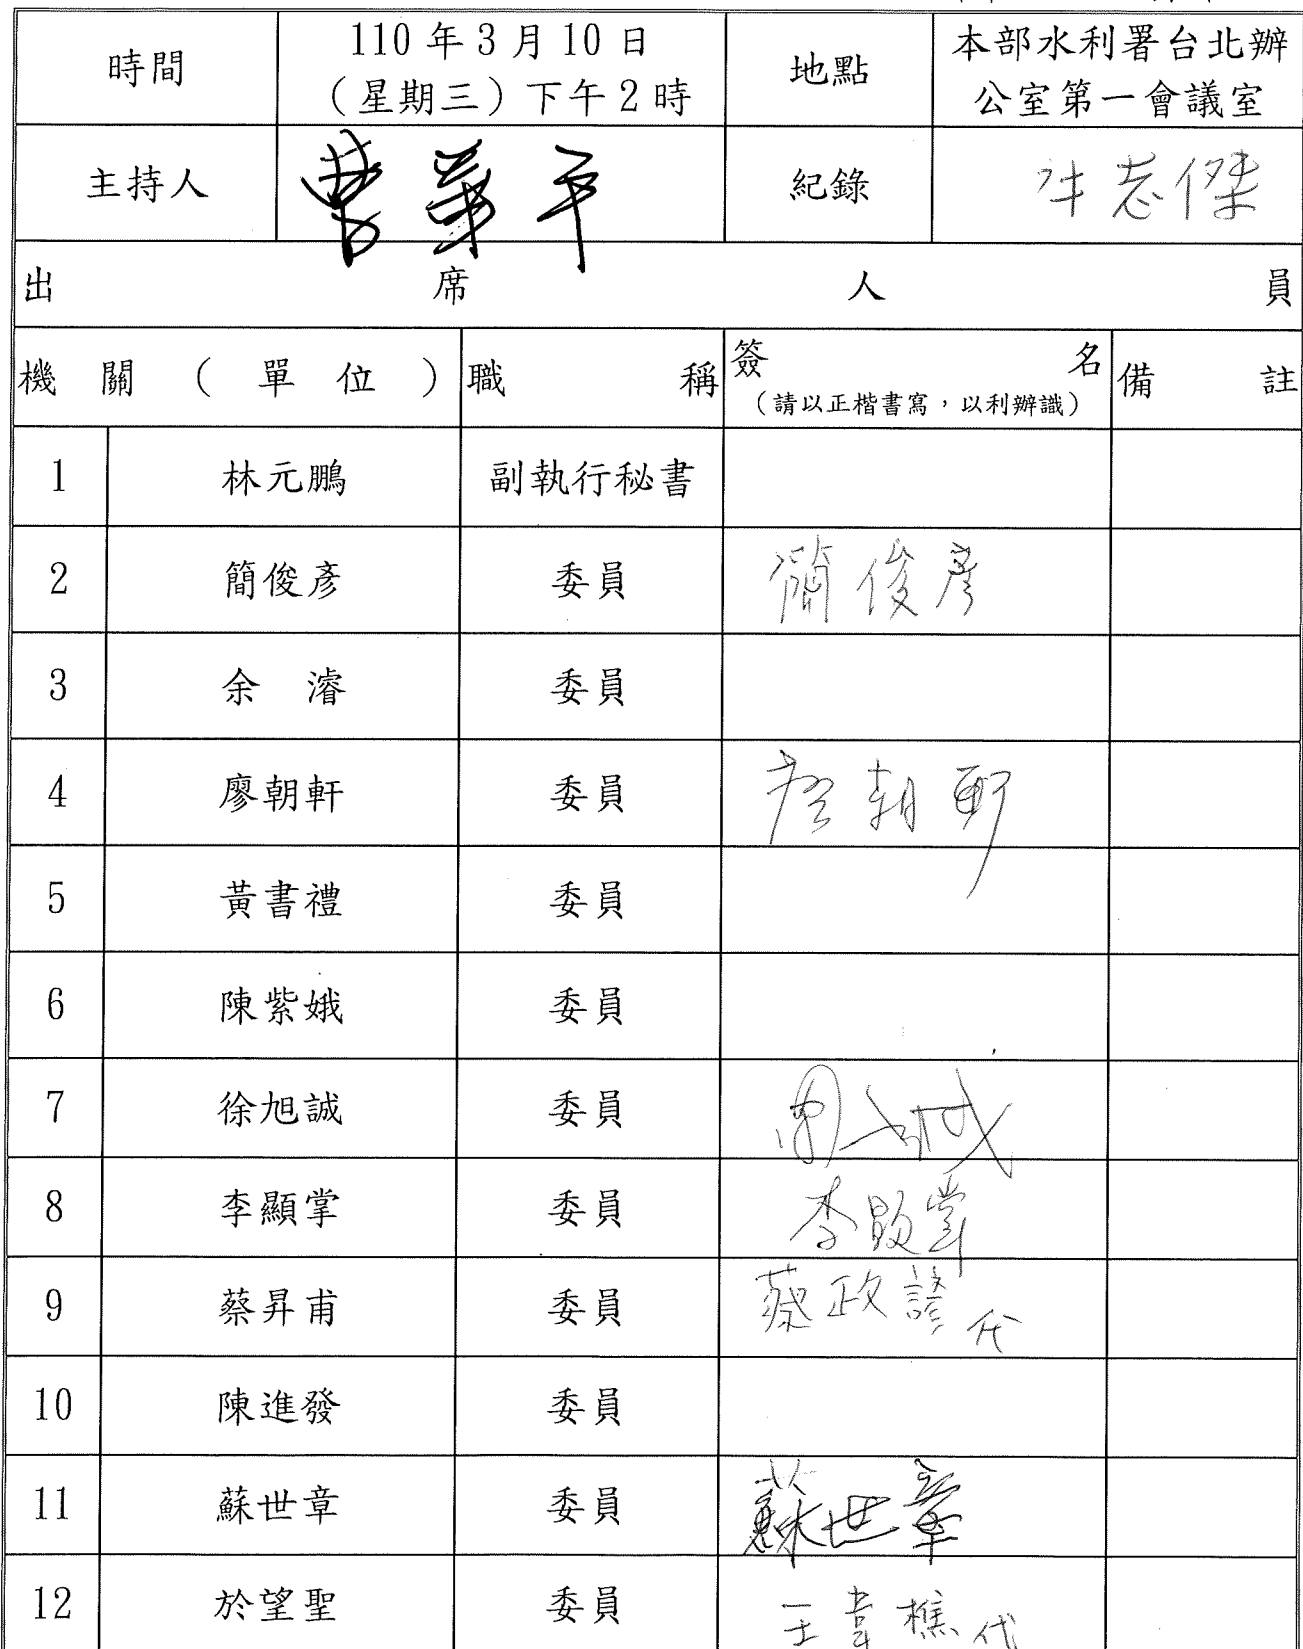 時間
110年3月10日
（星期三）下午2時
地點
本部水利署台北辦
公室第一會議室
主持人
曹華平
紀錄
志傑
出席人員
機關（單位）
職稱
簽名
（請以正楷書寫，以利辦識）
備註
1 林元鵬 副執行秘書
2 簡俊彥 委員 簡俊彥
3 余濬 委員
4 廖朝軒 委員 廖朝軒
5 黃書禮 委員
6 陳紫娥 委員
7 徐旭誠 委員
8 李顯掌 委員 李顯掌
9 蔡昇甫 委員 蔡政諺代
10 陳進發 委員
11 蘇世章 委員 蘇世章
12 於望聖 委員 王韋樵代